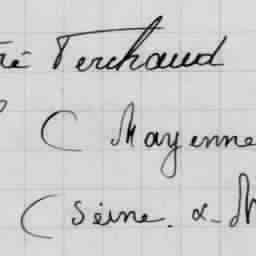 ré Terchaud
( Mayenne
( Seine. &-M